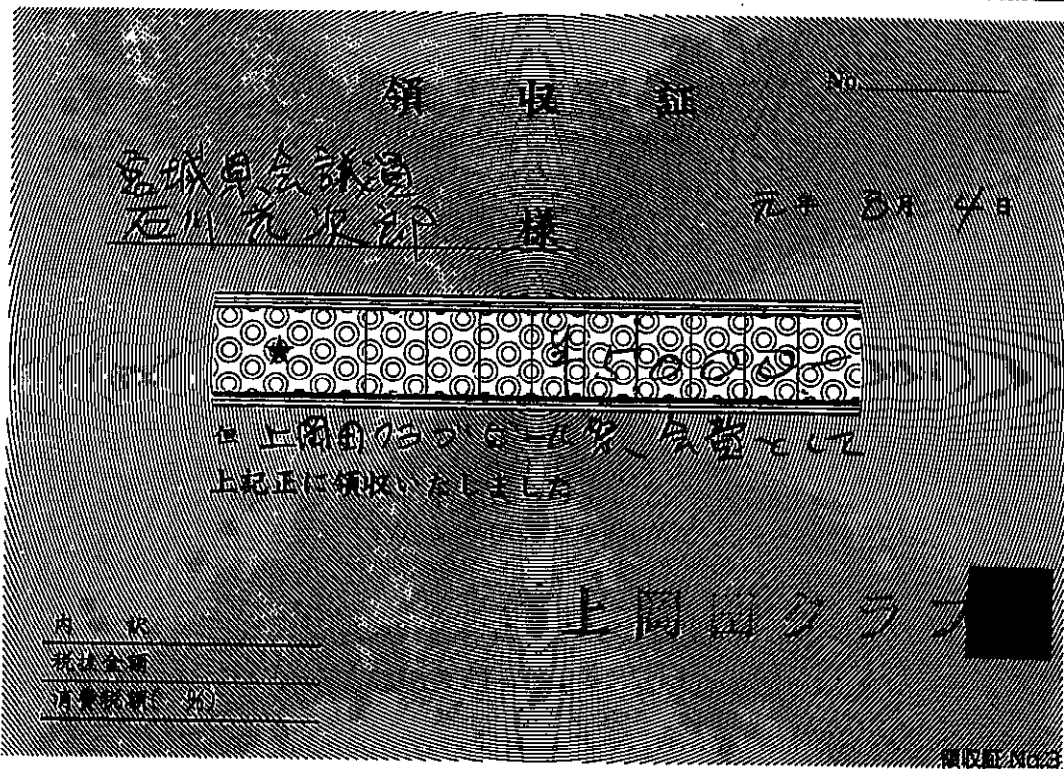 領収証
No.
宮城県会議員
石川光次郎 様
元年 8月 4日
★ ¥5000-
但 上岡田クラブ 会費として
上記正に領収いたしました
上岡田クラブ
内訳
税抜金額
消費税額( %)
領収証 No.3